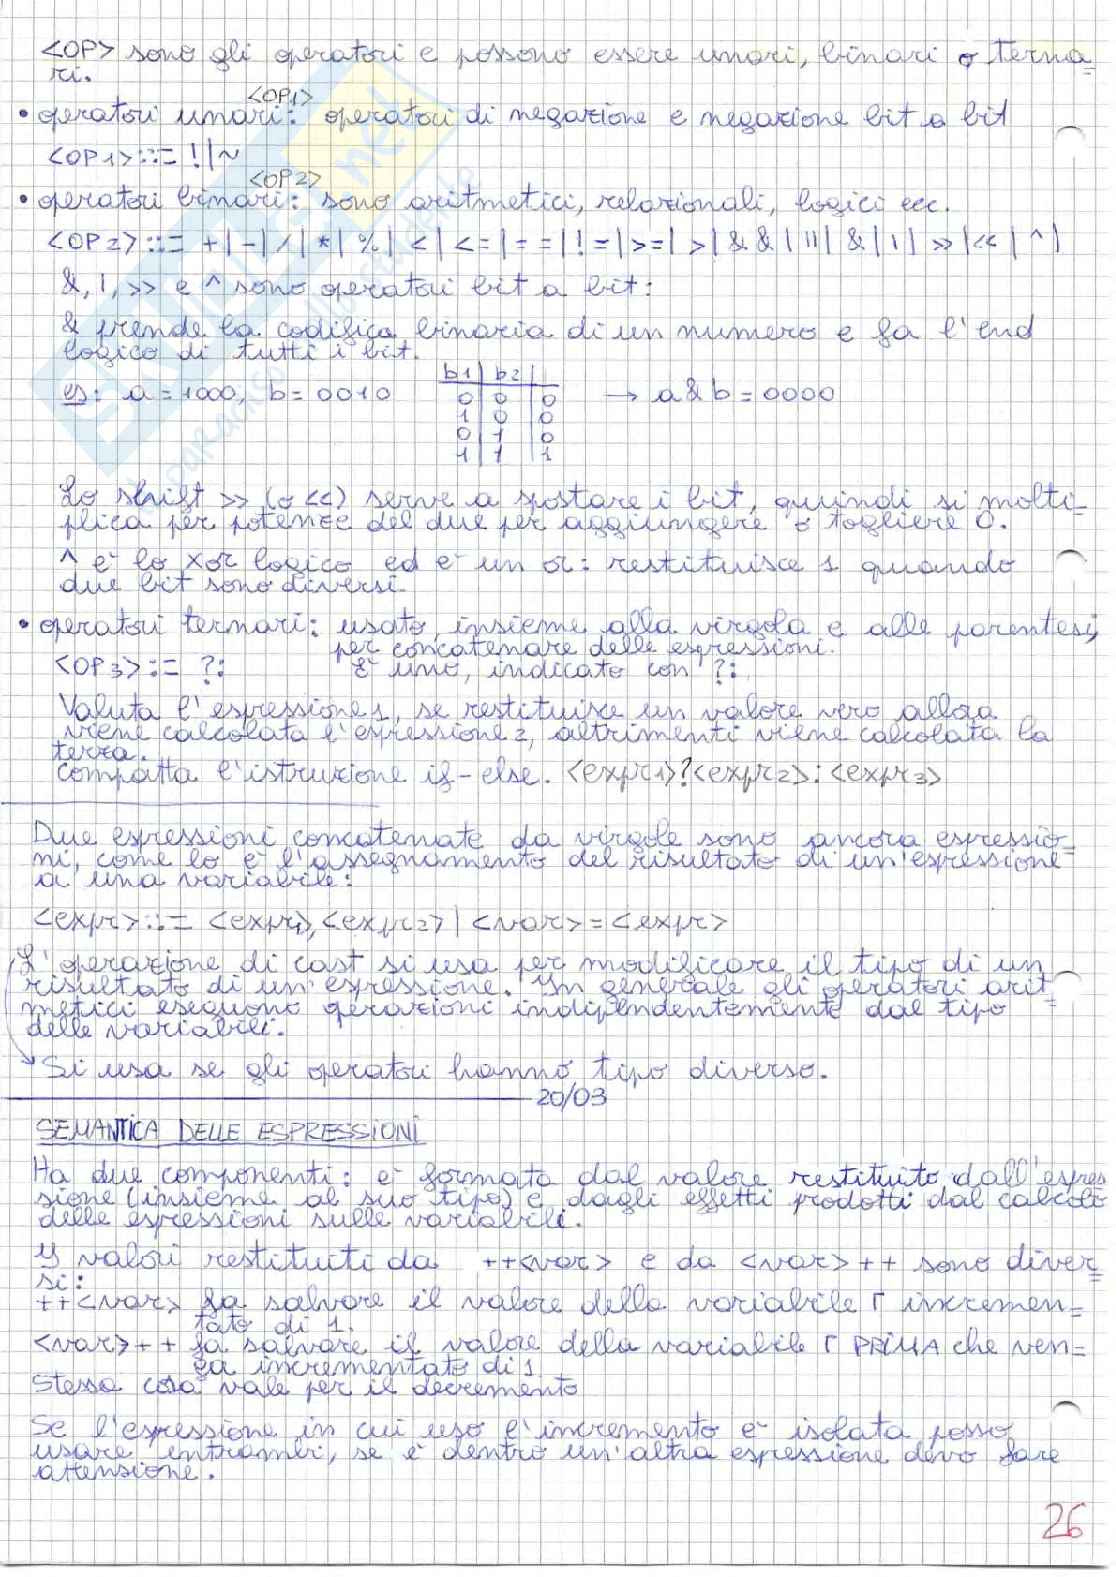 <OP> sono gli operatori e possono essere unari, binari o terna=
ri.
<OP1>
• operatori unari: operatori di negazione e negazione bit a bit
<OP1>::= !|~
<OP2>
• operatori binari: sono aritmetici, relazionali, logici ecc.
<OP2>::= +|-|/|*|%|<|<=|==|!=|>=|>|&&|||||&|||>>|<<|^|
&, |, >> e ^ sono operatori bit a bit:
& prende la codifica binaria di un numero e fa l'end
logico di tutti i bit.
es: a=1000, b=0010
b1 | b2 |
0 | 0 | 0
1 | 0 | 0
0 | 1 | 0
1 | 1 | 1
→ a&b=0000
Lo shift >> (o <<) serve a spostare i bit, quindi si molti=
plica per potenze del due per aggiungere o togliere 0.
^ è lo xor logico ed è un or: restituisce 1 quando
due bit sono diversi.
• operatori ternari: usato, insieme alla virgola e alle parentesi,
per concatenare delle espressioni.
<OP3>::= ?: È uno, indicato con ?:
Valuta l'espressione1, se restituisce un valore vero allora
viene calcolata l'espressione2, altrimenti viene calcolata la
terza.
Compatta l'istruzione if-else. <expr1>?<expr2>:<expr3>
Due espressioni concatenate da virgole sono ancora espressio=
ni, come lo è l'assegnamento del risultato di un'espressione
a una variabile:
<expr>::= <expr1>,<expr2>|<var>=<expr>
L'operazione di cast si usa per modificare il tipo di un
risultato di un'espressione. In generale gli operatori arit=
metici eseguono operazioni indipendentemente dal tipo
delle variabili.
Si usa se gli operatori hanno tipo diverso.
20/03
SEMANTICA DELLE ESPRESSIONI
Ha due componenti: è formata dal valore restituito dall'espres
sione (insieme al suo tipo) e dagli effetti prodotti dal calcolo
delle espressioni sulle variabili.
I valori restituiti da ++<var> e da <var>++ sono diver=
si:
++<var> fa salvare il valore della variabile r incremen=
tato di 1.
<var>++ fa salvare il valore della variabile r PRIMA che ven=
ga incrementato di 1
Stessa cosa vale per il decremento
Se l'espressione in cui uso l'incremento è isolata posso
usare entrambi, se è dentro un'altra espressione devo fare
attenzione.
26